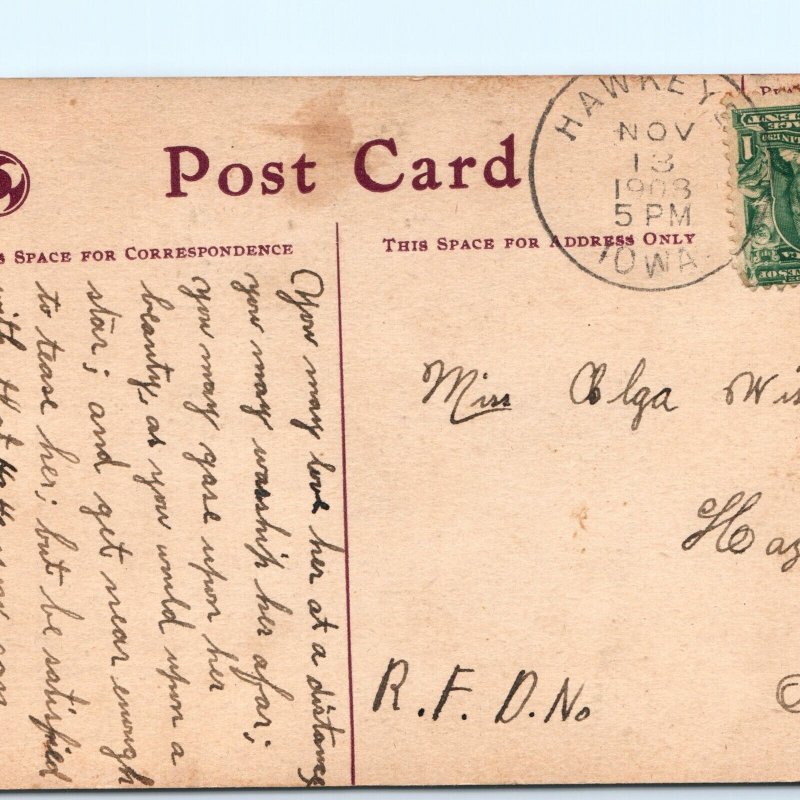 Post Card
SPACE FOR CORRESPONDENCE
THIS SPACE FOR ADDRESS ONLY
HAWKEYE
NOV
13
1908
5 PM
IOWA
1
You may love her at a distance
you may warship her afar;
you may gase upon her
beauty, as you would upon a
star; and get near enough
to tease her; but be satisfied
with that
Miss Olga Wis
Haz
R. F. D. No